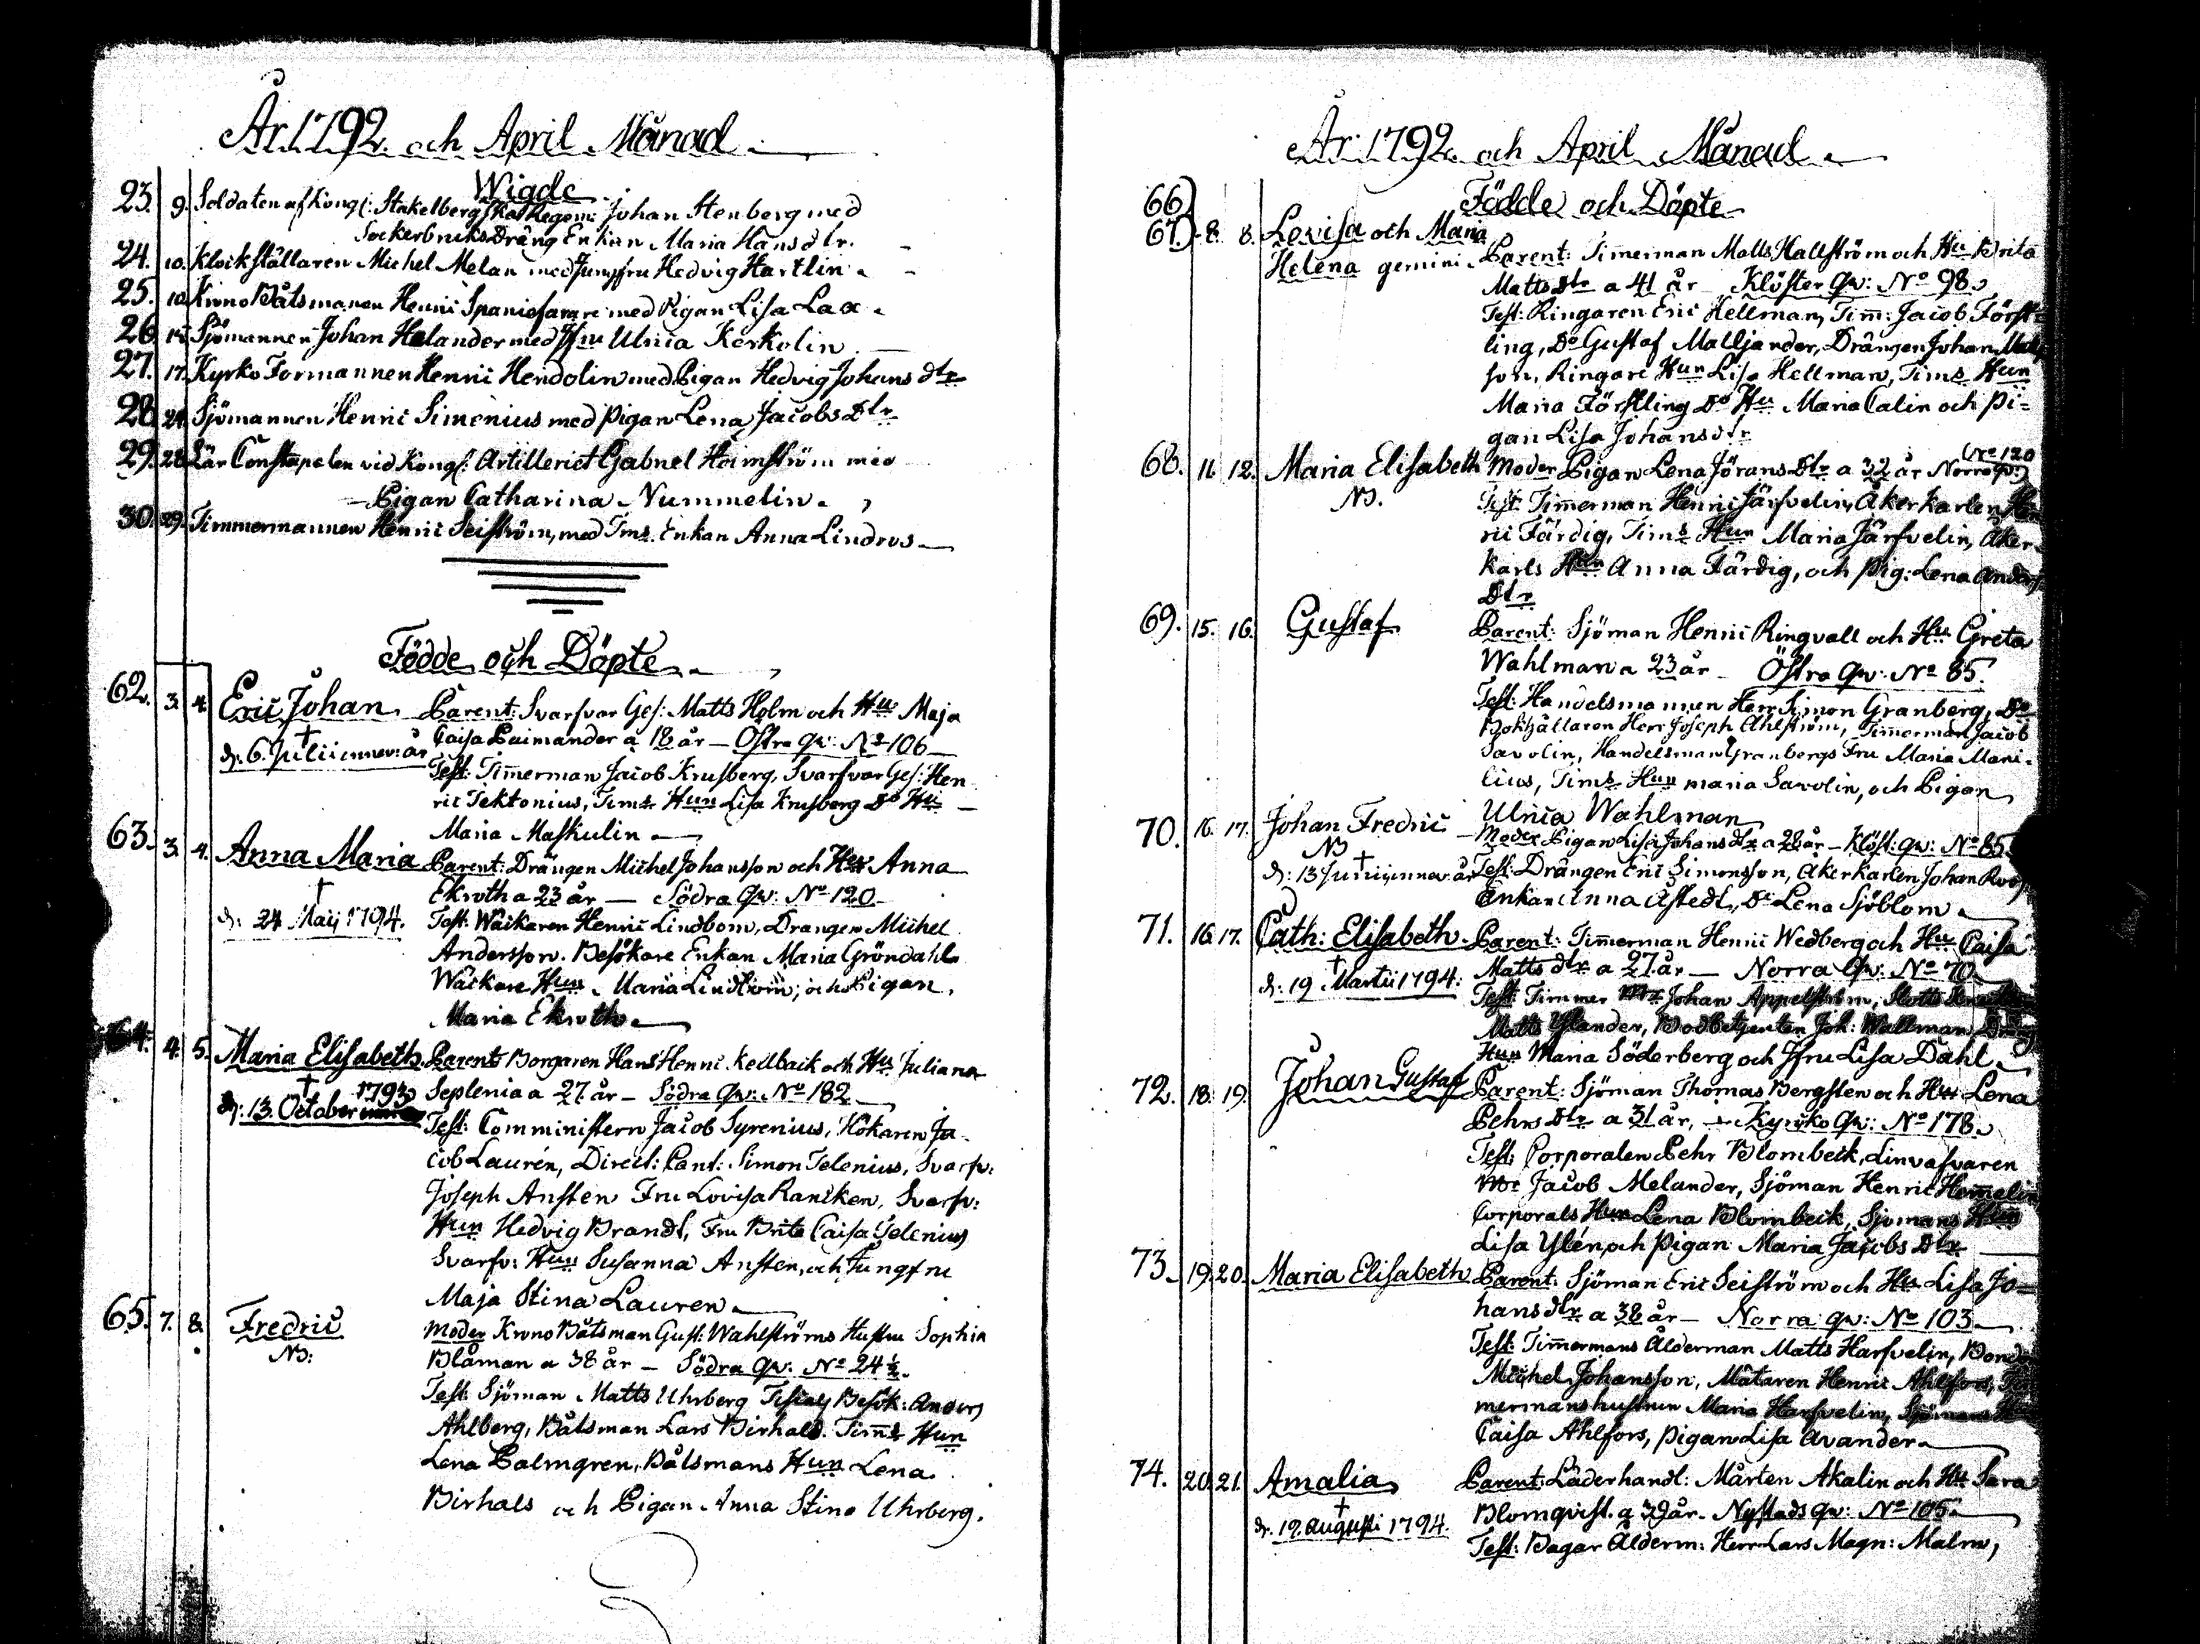 År 1792. och April Månad.
Wigde
23. 9. Soldaten af Kongl: Stakelbergska Regem: Johan Stenberg med
Sockerbruks Dräng Enkan Maria Hansdtr.
24. 10. Klockställaren Michel Melan med Jungfru Hedvig Hartlin.
25. 10. Krono Båtsmanen Henric Spaniefarare med Pigan Lisa Lax.
26. 15. Sjömannen Johan Helander med Jfru Ulrica Kerkolin
27. 17. Kyrko Formannen Henric Hendolin med Pigan Hedvig Johans dtr
28. 24. Sjömannen Henric Simenius med Pigan Lena Jacobs Dtr
29. 28. Lär Constapelen vid Kongl: Artilleriet Gabriel Heimström med
Pigan Catharina Nummelin.
30. 29. Timmermannen Henric Seiström, med Tims Enkan Anna Lindros
Födde och Döpte.
62. 3. 4. Eric Johan Parent: Svarfvar Ges: Matts Holm och Hu Maja
Caisa Paimander a 18 år — Östra qv: No 106
† d. 6. Julii innev: år
Test: Timerman Jacob Krusberg, Svarfvar Ges: Hen
ric Tektonius, Tims Hun Lisa Krusberg Do Hu
Maria Maskulin
63. 3. 4. Anna Maria Parent: Drängen Michel Johansson och Hu Anna
Ekroth a 23 år — Södra Qv: No 120
† d: 24 Maij 1794. Test: Wäckaren Henric Lindbom, Drängen Michel
Andersson. Besökare Enkan Maria Gröndahl
Wäckare Hun Maria Lindbom; och Pigan,
Maria Ekroth
64. 4. 5. Maria Elisabeth. Parent: Borgaren Hans Henric Kellback och Hu Juliana
Seplenia a 27 år — Södra Qv: No 182
† d: 13. October 1793
Test: Comministern Jacob Tyrenius, Hökaren Ja-
cob Laurén, Direct: Cant: Simon Telenius, Svarfv:
Joseph Ansten Fru Lovisa Rancken, Svarfv:
Hun Hedvig Brandt, Fru Brita Caisa Telenius
Svarfv: Hun Susanna Ansten, och Jungfru
Maja Stina Lauren
65. 7. 8. Fredric Moder Krono Båtsman Gust: Wahlströms Hustru Sophia
NB: Blåman a 38 år — Södra Qv: No 24½.
Test: Sjöman Matts Uhrberg Besök: Anders
Ahlberg, Båtsman Lars Birhals. Tims Hun
Lena Palmgren, Båtsmans Hun Lena
Birhals och Pigan Anna Stina Uhrberg.
År 1792. och April Månad
Födde och Döpte
66)
67) 8. 8. Lovisa och Maria
Helena gemini. Parent: Timerman Matts Hallström och Hu Brita
Matts dtr a 41 år Klöster Qv: No 98.
Test: Ringaren Eric Hellman, Tim: Jacob Först-
ling, Do Gustaf Malljander, Drängen Johan Mats
son, Ringare Hun Lisa Hellman, Tims Hun
Maria Förstling Do Hu Maria Calin och Pi-
gan Lisa Johansdtr
68. 11. 12. Maria Elisabeth Moder Pigan Lena Jörans Dtr a 32 år Norra qv: (No 120
NB. Test: Timerman Henric Järfvelin, Åkerkarlen Hen
ric Färdig, Tims Hun Maria Järfvelin, Åker-
karls Hun Anna Färdig, och Pig: Lena Anders
Dtr
69. 15. 16. Gustaf Parent: Sjöman Henric Ringvall och Hu Greta
Wahlman a 23 år — Östra Qv: No 85.
Test: Handelsmannen Herr Simon Granberg, Do
Bokhållaren Herr Joseph Ahlström, Timerman Jacob
Savolin, Handelsman Granbergs Fru Maria Mani-
lius, Tims Hun Maria Savolin, och Pigan
Ulrica Wahlman
70. 16. 17. Johan Fredric Moder Pigan Lisa Johansdtr a 28 år — Klöst: qv: No 85.
NB † d: 13 Junii innev: år Test: Drängen Eric Simonsson, Åkerkarlen Johan
Enkan Anna Åstedt, Do Lena Sjöblom
71. 16. 17. Cath: Elisabeth. Parent: Timerman Henric Wedberg och Hu Caisa
† d: 19 Martii 1794: Matts dtr a 27 år — Norra Qv: No 70
Test: Timmer Mr Johan Appelström, Slotts
Matts Ylander, Bodbetjenten Joh: Wallman,
Hun Maria Söderberg och Jfru Lisa Dahl
72. 18. 19. Johan Gustaf Parent: Sjöman Thomas Bergsten och Hu Lena
Pehrs Dtr a 31 år, — Kyrko Qv: No 178.
Test: Corporalen Pehr Blombeck, Linväfvaren
Mr Jacob Melander, Sjöman Henric Hemelin
Corporals Hun Lena Blombeck, Sjömans Hun
Lisa Ylén och Pigan Maria Jacobs Dtr
73. 19. 20. Maria Elisabeth Parent: Sjöman Eric Seiström och Hu Lisa Jo=
hans dtr a 38 år — Norra qv: No 103
Test: Timermans Ålderman Matts Harfvelin, Bonden
Michel Johansson, Mätaren Henric Ahlfors, Tim
mermans hustrun Maria Harfvelin, Sjömans Hun
Caisa Ahlfors, Pigan Lisa Avander
74. 20. 21. Amalia Parent: Läderhandl: Mårten Akalin och Hu Sara
† d. 19. Augusti 1794. Blomqvist. a 39 år. Nystads qv: No 105.
Test: Bagar Ålderm: Herr Lars Magn: Malm,